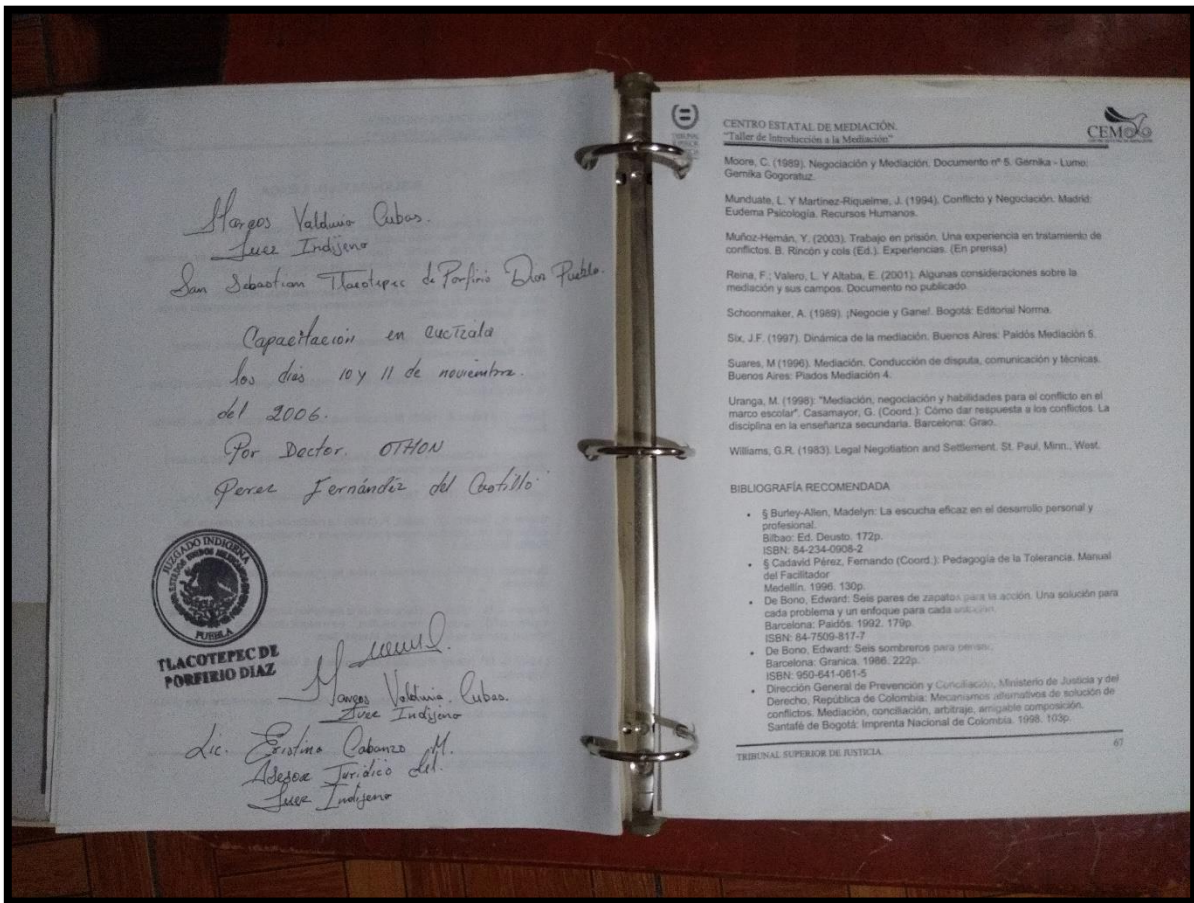 Marcos Valduvia Cubas.
Juez Indijena
San Sebastian Tlacotepec de Porfirio Dias Puebla.
Capacitacion en cuetzala
los dias 10 y 11 de noviembre.
del 2006.
Por Doctor. OTHON
Perez Fernández del Castillo
JUZGADO INDIGENA
ESTADOS UNIDOS MEXICANOS
PUEBLA
TLACOTEPEC DE
PORFIRIO DIAZ
Marcos Valduvia Cubas.
Juez Indijena
Lic. Cabanzo M.
Asesor Juridico del.
Juez Indijena
TRIBUNAL
SUPERIOR
CENTRO ESTATAL DE MEDIACIÓN.
"Taller de Introducción a la Mediación"
CEM
Moore, C. (1989). Negociación y Mediación. Documento nº 5. Gernika - Lumo:
Gernika Gogoratuz.
Munduate, L. Y Martinez-Riquelme, J. (1994). Conflicto y Negociación. Madrid:
Eudema Psicología. Recursos Humanos.
Muñoz-Hernán, Y. (2003). Trabajo en prisión. Una experiencia en tratamiento de
conflictos. B. Rincón y cols (Ed.). Experiencias. (En prensa)
Reina, F.; Valero, L. Y Altaba, E. (2001). Algunas consideraciones sobre la
mediación y sus campos. Documento no publicado.
Schoonmaker, A. (1989). ¡Negocie y Gane!. Bogotá: Editorial Norma.
Six, J.F. (1997). Dinámica de la mediación. Buenos Aires: Paidós Mediación 5.
Suares, M (1996). Mediación. Conducción de disputa, comunicación y técnicas.
Buenos Aires: Piados Mediación 4.
Uranga, M. (1998): "Mediación, negociación y habilidades para el conflicto en el
marco escolar". Casamayor, G. (Coord.): Cómo dar respuesta a los conflictos. La
disciplina en la enseñanza secundaria. Barcelona: Grao.
Williams, G.R. (1983). Legal Negotiation and Settlement. St. Paul, Minn., West.
BIBLIOGRAFÍA RECOMENDADA
• § Burley-Allen, Madelyn: La escucha eficaz en el desarrollo personal y
profesional.
Bilbao: Ed. Deusto. 172p.
ISBN: 84-234-0908-2
• § Cadavid Pérez, Fernando (Coord.): Pedagogía de la Tolerancia. Manual
del Facilitador
Medellín. 1996. 130p.
• De Bono, Edward: Seis pares de zapatos para la acción. Una solución para
cada problema y un enfoque para cada solución.
Barcelona: Paidós. 1992. 179p.
ISBN: 84-7509-817-7
• De Bono, Edward: Seis sombreros para pensar.
Barcelona: Granica. 1986. 222p.
ISBN: 950-641-061-5
• Dirección General de Prevención y Conciliación, Ministerio de Justicia y del
Derecho, República de Colombia: Mecanismos alternativos de solución de
conflictos. Mediación, conciliación, arbitraje, amigable composición.
Santafé de Bogotá: Imprenta Nacional de Colombia. 1998. 103p.
67
TRIBUNAL SUPERIOR DE JUSTICIA.